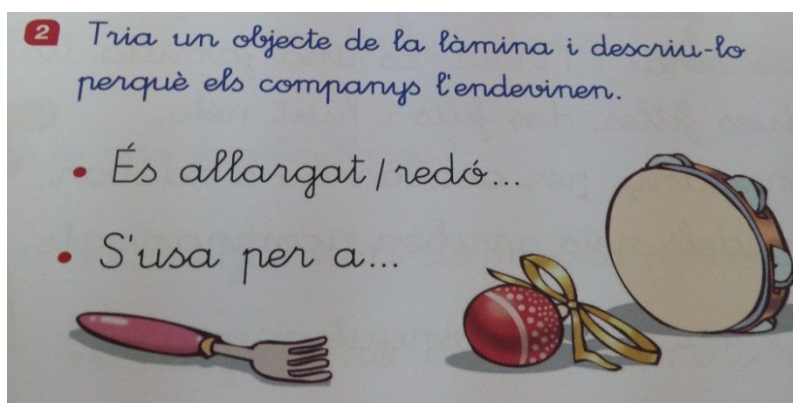 2 Tria un objecte de la làmina i descriu-lo
perquè els companys l'endevinen.
• És allargat/redó...
• S'usa per a...